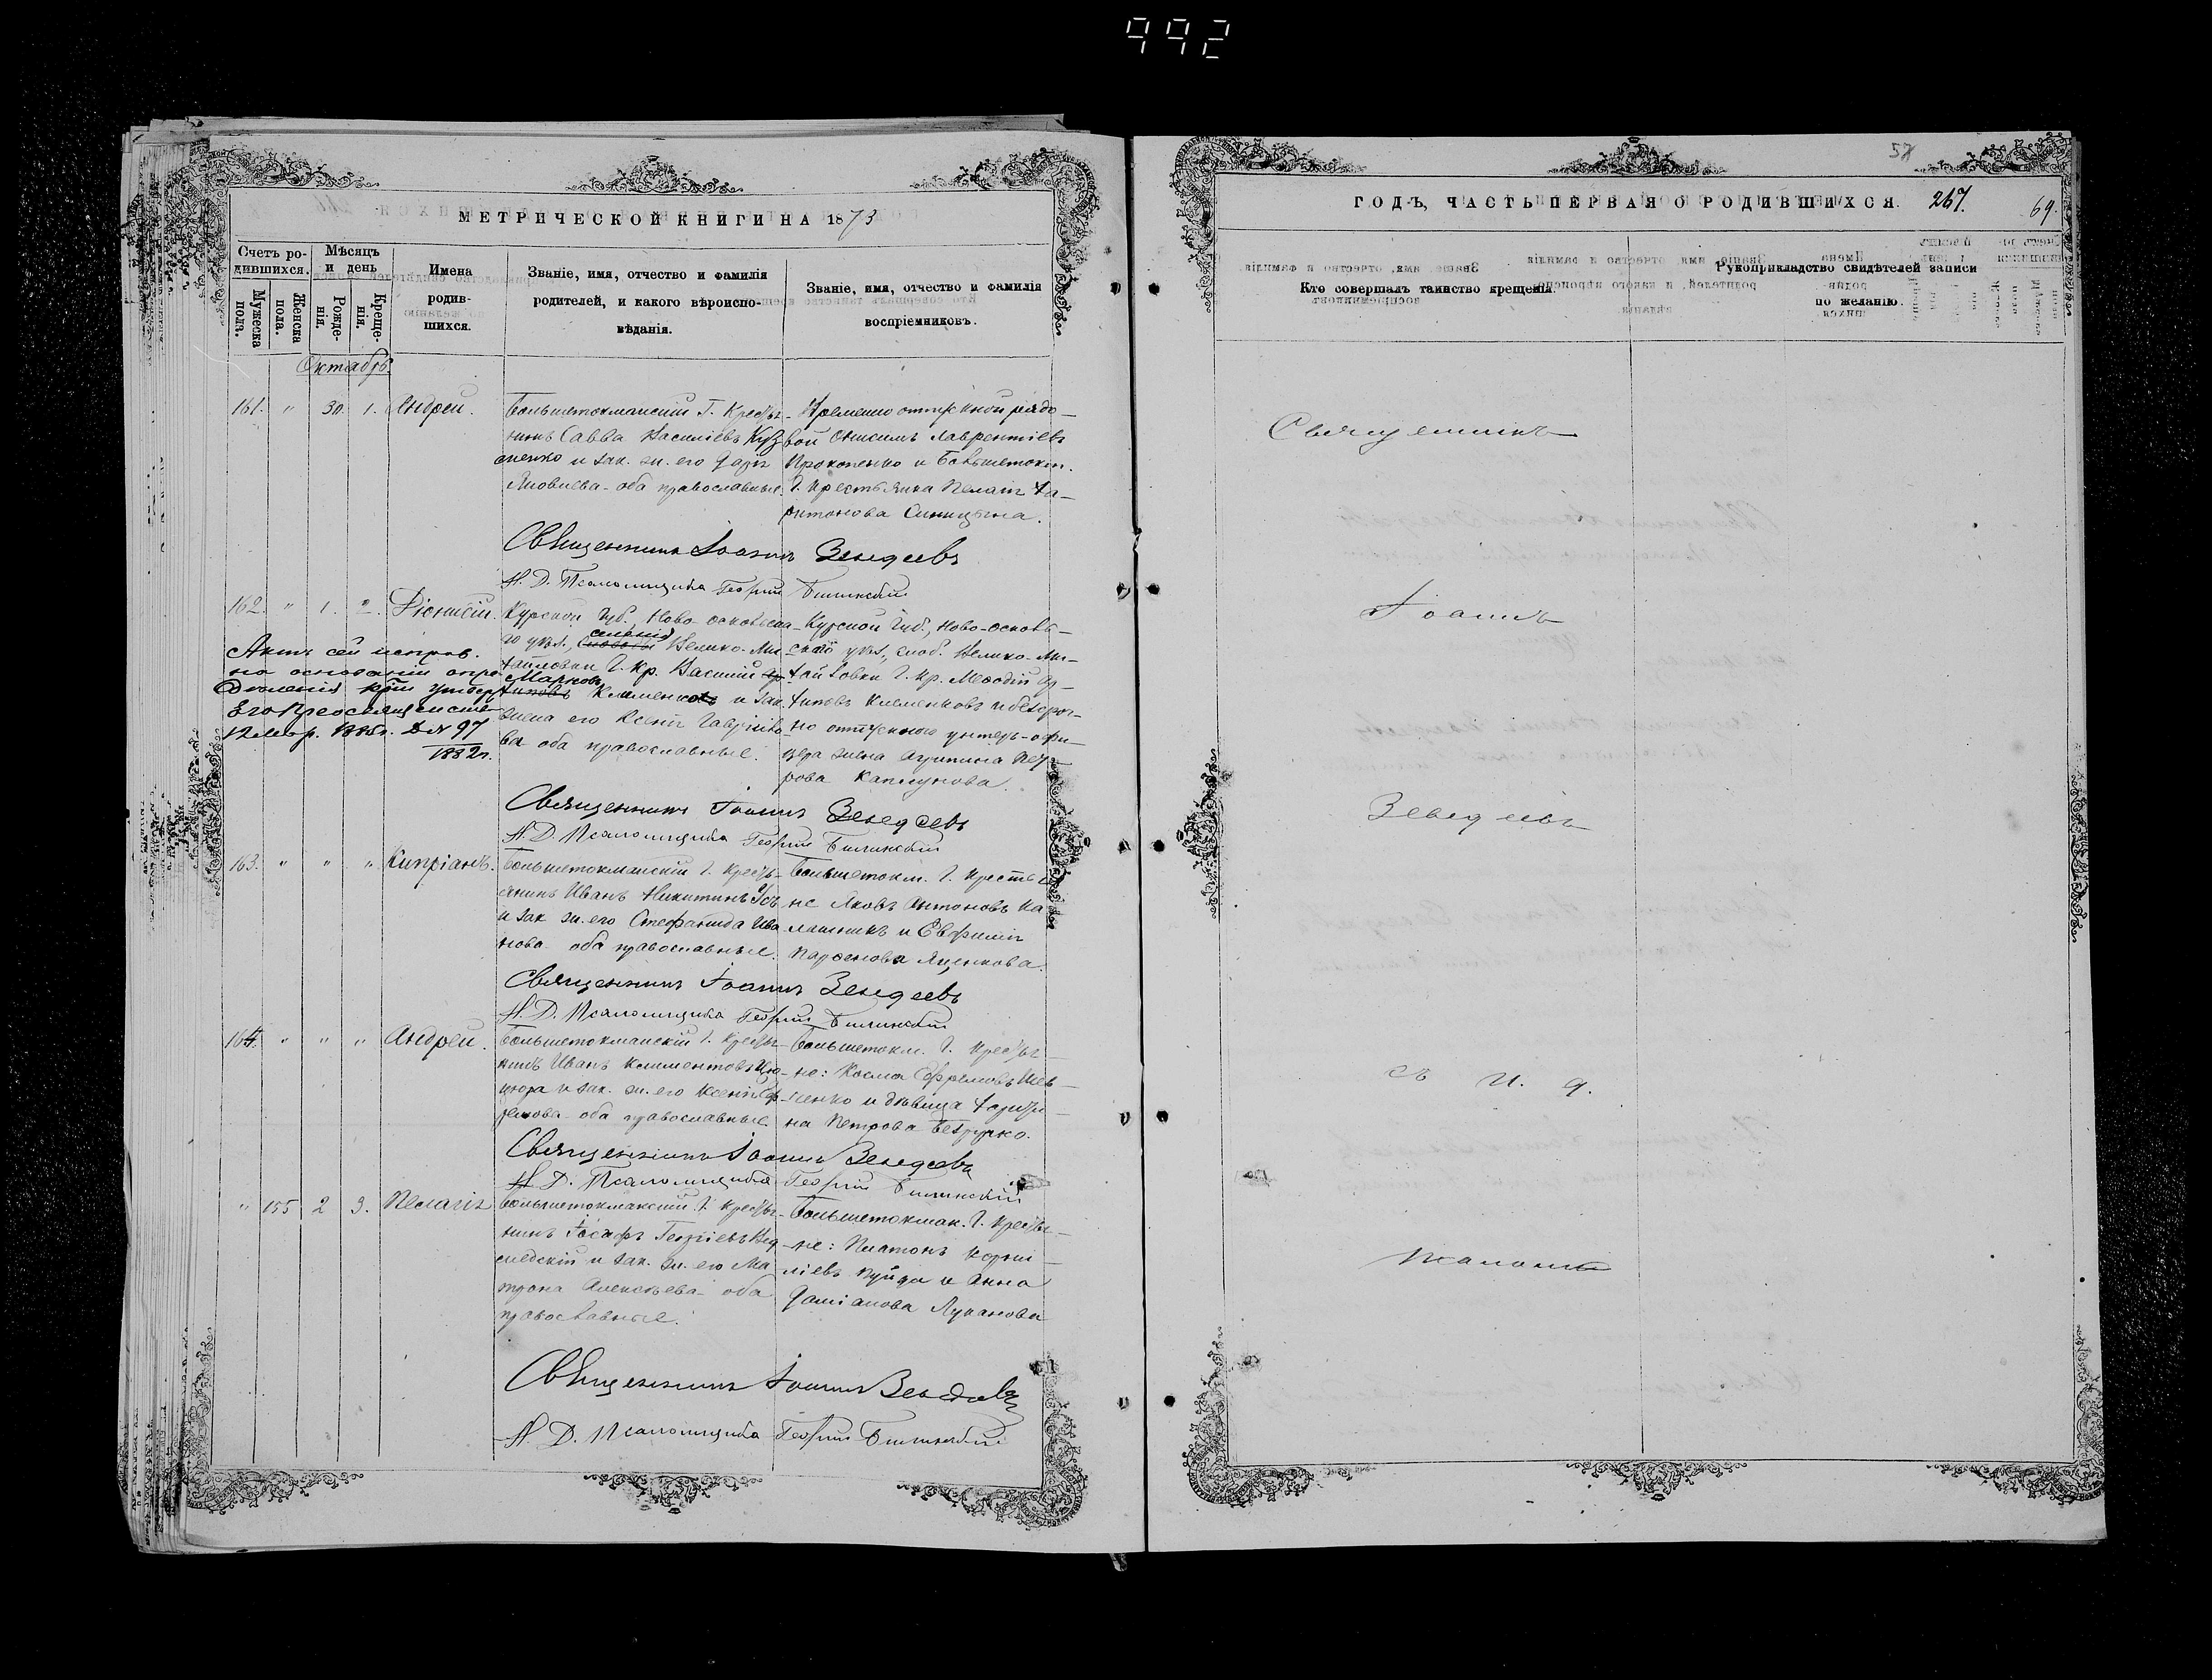 992
МЕТРИЧЕСКОЙ КНИГИ НА 1873
Счетъ ро-
дившихся.
Мужеска пола.
Женска пола.
Мѣсяцъ
и день
Рожде-
нія.
Креще-
нія.
Имена
родив-
шихся.
Званіе, имя, отчество и фамилія
родителей, и какого вѣроиспо-
вѣданія.
Званіе, имя, отчество и фамилія
воспріемниковъ.
Октябрь.
161. " 30. 1. Андрей.
Большетокмакскій Г. Кресть-
нинъ Савва Василіевъ Куз
менко и зак. ж. его Дарія
Яковлева - оба православные.
Временно отпускной рядо-
вой Онисимъ Лаврентіевъ
Прокопенко и Большетокм.
Г. Крестьянка Пелагія Ха-
ритонова Синицына.
Священникъ Іоаннъ Зеведеевъ
И. Д. Псаломщика Георгій
162. " 1. " Діонисій.
Курской Губ., Ново-Оскольска-
го уѣз., слободы селенія Велико-Ми-
хайловки Г. Кр. Василій
Марковъ и зак.
жена его Ксенія Гавріило-
ва оба православные.
Курской Губ., Ново-Осколь-
скаго уѣз., слоб. Велико-Ми-
хайловки Г. Кр. Меѳодій Ар-
хиповъ Клименковъ и безсроч-
но отпускного унтеръ-офи-
цера жена Агрипина Пет-
рова Каплунова.
Актъ сей исправ.
на основаніи опре
дѣленія
Его Преосвященства
№ 97
1882г.
Священникъ Іоаннъ Зеведеевъ
И. Д. Псаломщика Георгій
163. " " " Кипріанъ.
Большетокмакскій Г. Кресть-
янинъ Иванъ Никитинъ
и зак. ж. его Стефанида Ива
нова - оба православные.
Большетокм. Г. Крестья
не Яковъ Антоновъ Ка
лашникъ и Евфимія
Парѳенова Яценкова.
Священникъ Іоаннъ Зеведеевъ
И. Д. Псаломщика Георгій
164. " " " Андрей.
Большетокмакскій Г. Кресть-
нинъ Иванъ Климентовъ
и зак. ж. его Ксенія Еф
ремова - оба православные.
Большетокм. Г. Кресть-
не: Косма Ефремовъ Шев-
ченко и дѣвица
на Петрова Безручко.
Священникъ Іоаннъ Зеведеевъ
И. Д. Псаломщика Георгій
" 155 2 3. Пелагія
Большетокмакскій Г. Кресть-
нинъ Іосафъ Георгіевъ
и зак. ж. его Ма
трона Алексѣева - оба
православные.
Большетокмак. Г. Кресть-
не: Платонъ Корни-
ліевъ Пуйда и Анна
Даміанова Луканова
Священникъ Іоаннъ Зеведеевъ
И. Д. Псаломщика Георгій
57
ГОДЪ, ЧАСТЬ ПЕРВАЯ О РОДИВШИХСЯ. 267. 69.
Кто совершалъ таинство крещенія.
Рукоприкладство свидѣтелей записи
по желанію.
Священникъ
Іоаннъ
Зеведеевъ
съ И. д.